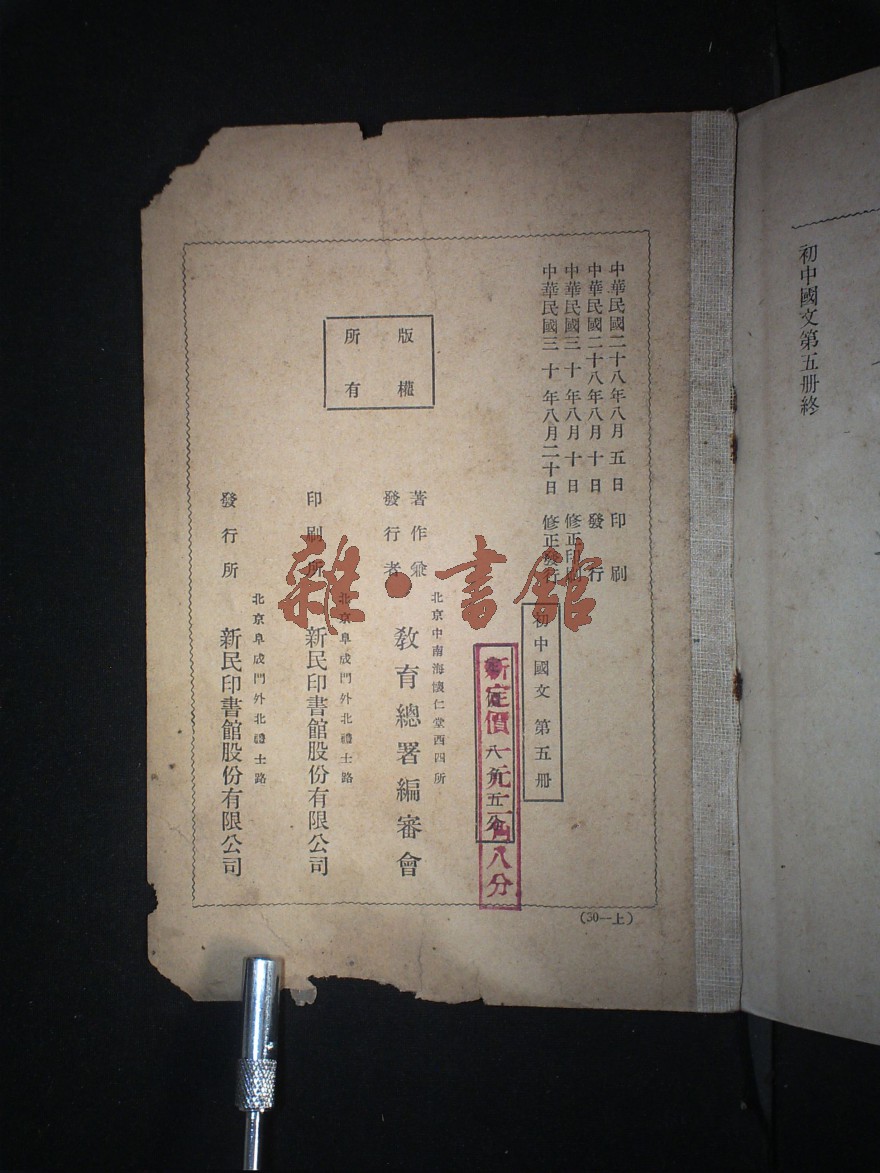 初中國文第五册終
中華民國二十八年八月五日印刷
中華民國二十八年八月十日發行
中華民國三十年八月十日修正印刷
中華民國三十年八月二十日修正發行
初中國文 第五册
新定價一元二角八分
八角五分
版權
所有
北京中南海懷仁堂西四所
著作兼
發行者
教育總署編審會
北京阜成門外北禮士路
印刷所
新民印書館股份有限公司
北京阜成門外北禮士路
發行所
新民印書館股份有限公司
(30—上)
雜·書館